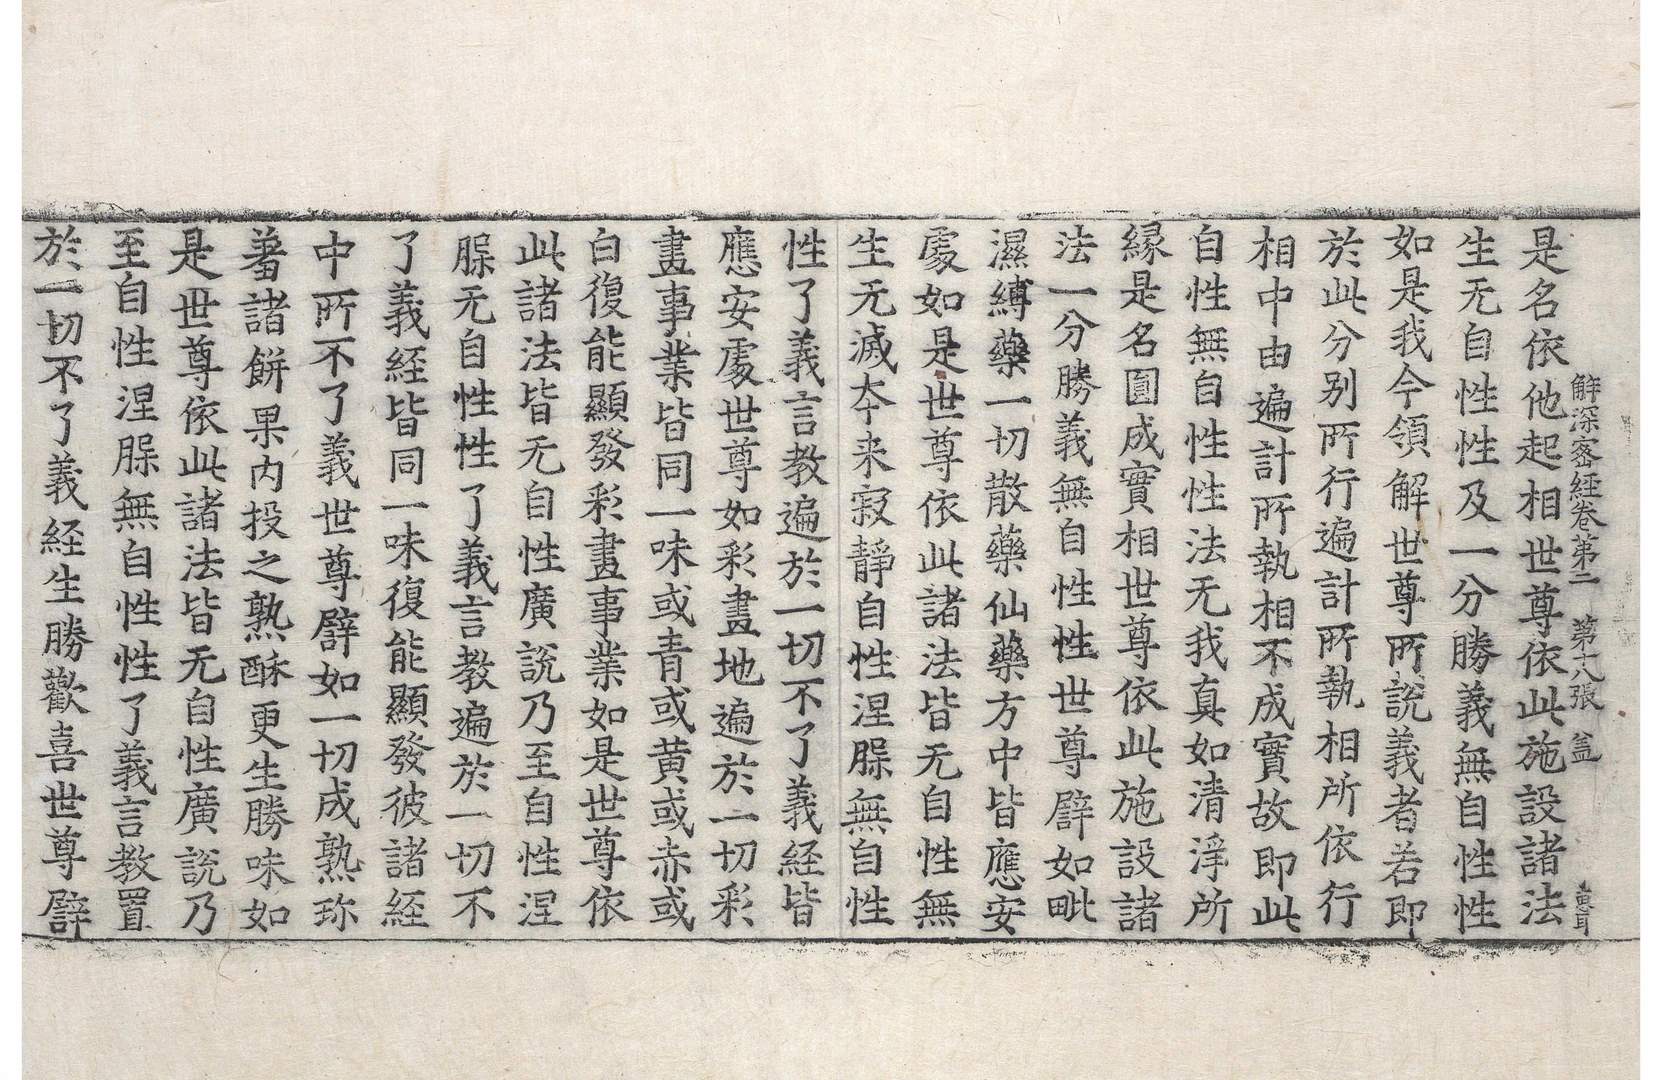 解深密經卷第二　第十八張　盖　惠耳
是名依他起相世尊依此施設諸法
生无自性性及一分勝義無自性性
如是我今領解世尊所說義者若即
於此分别所行遍計所執相所依行
相中由遍計所執相不成實故即此
自性無自性性法无我真如清淨所
緣是名圓成實相世尊依此施設諸
法一分勝義無自性性世尊譬如毗
濕縛藥一切散藥仙藥方中皆應安
處如是世尊依此諸法皆无自性無
生无滅夲来寂靜自性涅槃無自性
性了義言教遍於一切不了義經皆
應安處世尊如彩畫地遍於一切彩
畫事業皆同一味或青或黄或赤或
白復能顯發彩畫事業如是世尊依
此諸法皆无自性廣說乃至自性涅
槃无自性性了義言教遍於一切不
了義經皆同一味復能顯發彼諸經
中所不了義世尊譬如一切成熟珎
羞諸餅果內投之熟酥更生勝味如
是世尊依此諸法皆无自性廣說乃
至自性涅槃無自性性了義言教置
於一切不了義經生勝歡喜世尊譬